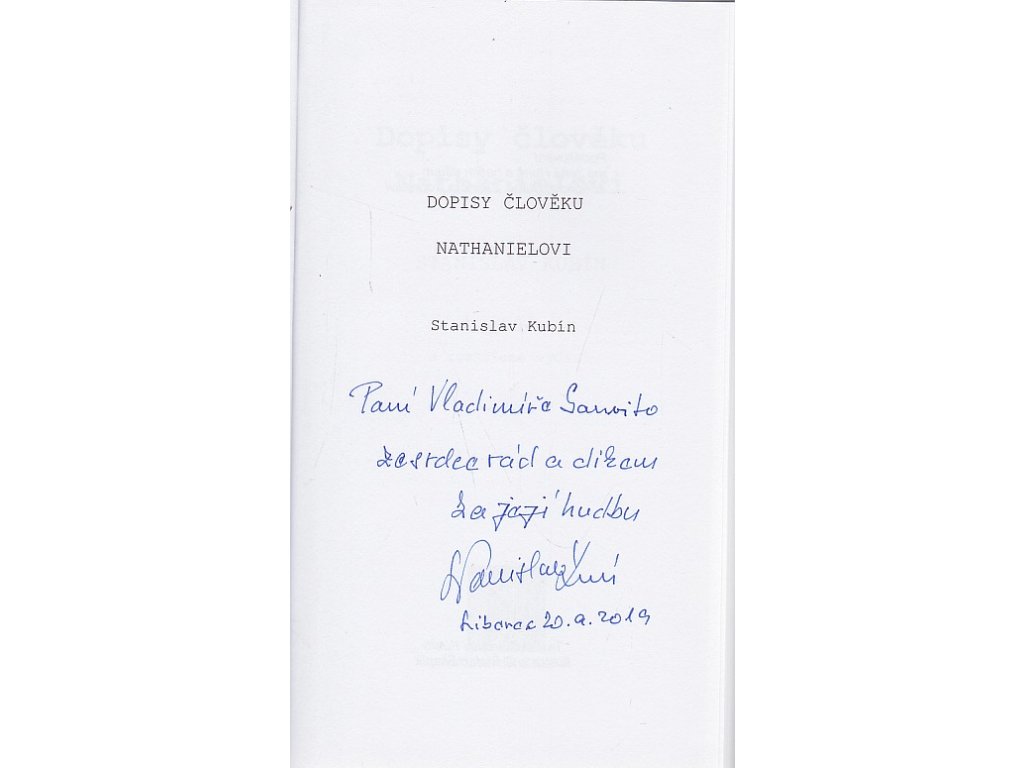 DOPISY ČLOVĚKU
NATHANIELOVI
Stanislav Kubín
Paní Vladimíře
ze srdce rád a
za její hudbu
Stanislav
Liberec 20.9.2019